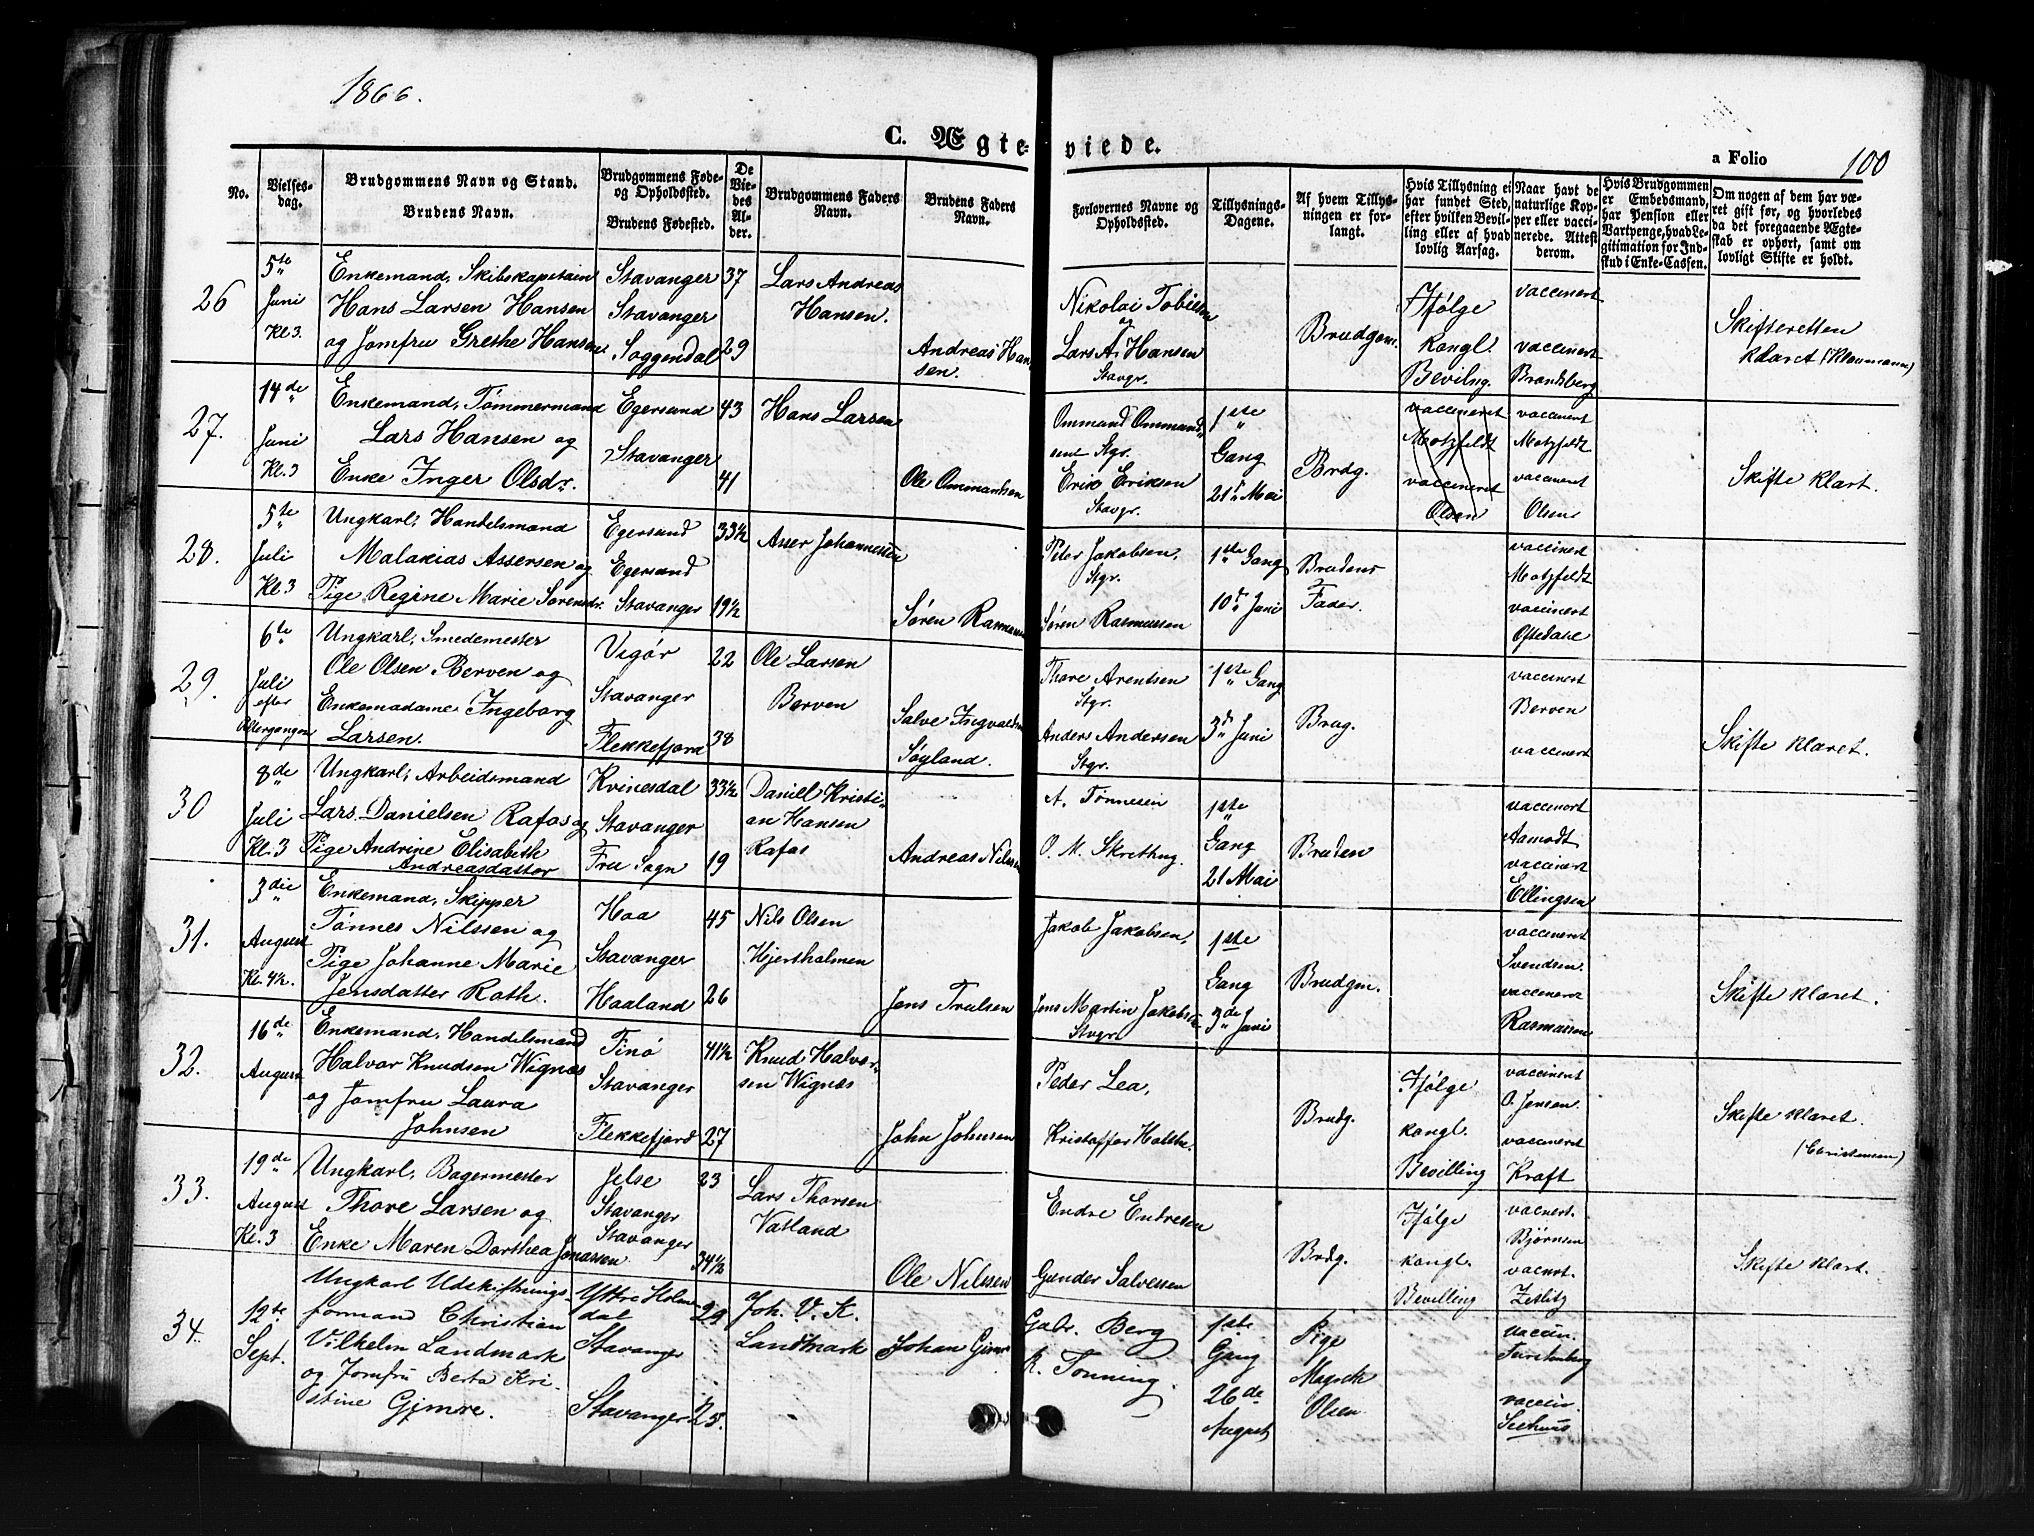 1866.
C. Ægteviede.
a Folio 100
No.
Vielses-
dag.
Brudgommens Navn og Stand.
Brudens Navn.
Brudgommens Føde-
og Opholdssted.
Brudens Fødested.
De
Vie-
des
Al-
der.
Brudgommens Faders
Navn.
Brudens Faders
Navn.
Forlovernes Navne og
Opholdssted.
Tillysnings-
Dagene.
Af hvem Tillys-
ningen er for-
langt.
Hvis Tillysning ei
har fundet Sted,
efter hvilken Bevil-
ling eller af hvad
lovlig Aarsag.
Naar havt de
naturlige Kop-
per eller vacci-
nerede. Attest
derom.
Hvis Brudgommen
er Embedsmand,
har Pension eller
Vartpenge, hvad Le-
gitimation for Ind-
skud i Enke-Cassen.
Om nogen af dem har væ-
ret gift før, og hvorledes
da det foregaaende Ægte-
skab er ophørt, samt om
lovligt Skifte er holdt.
26
5te
Juni
Kl. 3.
Enkemand, Skibskapitain
Hans Larsen Hansen
og Jomfru Grethe Hansen
Stavanger
Stavanger
Soggendal
37
29
Lars Andreas
Hansen.
Andreas Han
sen.
Nikolai Tobiesen
og
Lars A. Hansen
Stavgr.
Brudgom.
Ifølge
kongl.
Bevilng.
vaccinert
vaccinert
Brandsberg
Skifteretten
klaret (Klaumann)
27.
14de
Juni
Kl. 3
Enkemand, Tømmermand
Lars Hansen og
Enke Inger Olsdr.
Egersund
Stavanger
43
41
Hans Larsen
Ole Ommundsen
Ommund Ommund-
sen Stgr.
Erik Eriksen
Stavgr.
1ste
Gang
21d Mai
Brdg.
vaccineret
Motzfeldt
vaccineret
Olsen
vaccinert
Motzfeldt
vaccinert
Olsen
Skifte klart.
28.
5te
Juli
Kl. 3
Ungkarl, Handelsmand
Malakias Assersen og
Pige Regine Marie Sørensdr.
Egersund
Egersund
Stavanger
33½
19½
Asser Johannesen
Søren Rasmussen
Peter Jakobsen,
Stgr.
Søren Rasmussen
1ste Gang
10d Juni
Brudens
Fader.
vaccinert
Motzfeldt
vaccinert
Oftedale
29.
6te
Juli
efter
Altergangen
Ungkarl, Smedemester
Ole Olsen Berven og
Enkemadame Ingeborg
Larsen.
Vigør
Stavanger
Flekkefjord
22
38
Ole Larsen
Berven
Salve Ingvaldsen
Søyland.
Thore Arentsen
Stgr.
Anders Andersen
Stgr.
1ste Gang
3d Juni
Brug.
vaccinert
Berven
vaccinert
Skifte klaret.
30
8de
Juli
Kl. 3
Ungkarl, Arbeidsmand
Lars Danielsen Rafos og
Pige Andrine Elisabeth
Andreasdatter
Kvinesdal
Stavanger
Fru Sogn
33½
19
Daniel Kristi-
an Hansen
Rafos
Andreas Nilssen
A. Tønnesen
O. M. Skretting.
1ste
Gang
21 Mai
Bruden
vaccinert
Aamodt
vaccinert
Ellingsen
31.
3die
August
Kl. 4½.
Enkemand, Skipper
Tønnes Nilssen og
Pige Johanne Marie
Jensdatter Roth.
Haa
Stavanger
Haaland
45
26
Nils Olsen
Hjertholmen
Jens Trulsen
Jakob Jakobsen,
Jens Martin Jakobsen
Stvgr
1ste
Gang
3de Juni
Brudgm.
vaccineret
Svendsen.
vaccineret
Rasmussen
Skifte klaret.
32.
16de
August
Enkemand, Handelsmand
Halvor Knudsen Wignæs
og Jomfru Laura
Johnsen
Finø
Stavanger
Flekkefjord
41½
27
Knud Halvor-
sen Wignæs
John Johnsen
Peder Lea,
Kristoffer Holste.
Brudg.
Ifølge
kongl.
Bevilling
vaccinert
O. Jensen.
vaccineret
Kraft
Skifte klaret.
(Christensen)
33.
19de
August
Kl. 3
Ungkarl, Bagermester
Thore Larsen og
Enke Maren Dorthea Jonassen
Jelse
Stavanger
Stavanger
23
34½
Lars Thorsen
Vatland
Ole Nilssen
Endre Endresen
Gunder Salvessen
Brdg.
Ifølge
kongl.
Bevilling
vacnert.
Bjørnsen
vacnert.
Zetlitz
Skifte klart.
34.
12te
Sept.
Ungkarl Udskiftnings
formand Christian
Vilhelm Landmark
og Jomfru Berta Kri-
stine Gjemre.
Yttre Holme-
dal
Stavanger
Stavanger
29
25.
Joh. V. K.
Landmark
Johan Gjemre
Gabr. Berg
K. Tonning.
1ste
Gang
26de
August
Pige
Magrete
Olsen
vaccin.
vaccin.
Seehuus